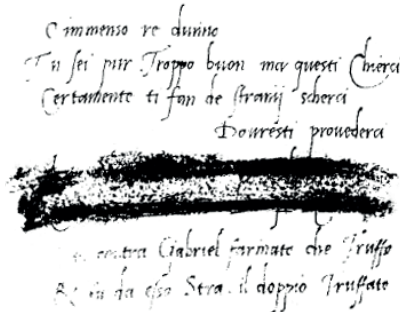 O immenso re divino
Tu sei pur Troppo buon ma questi Chierci
Certamente ti fan de stranij scherci
Dovresti provederci
contra Gabriel farinate che Truffo
da esso Stra il doppio Truffato